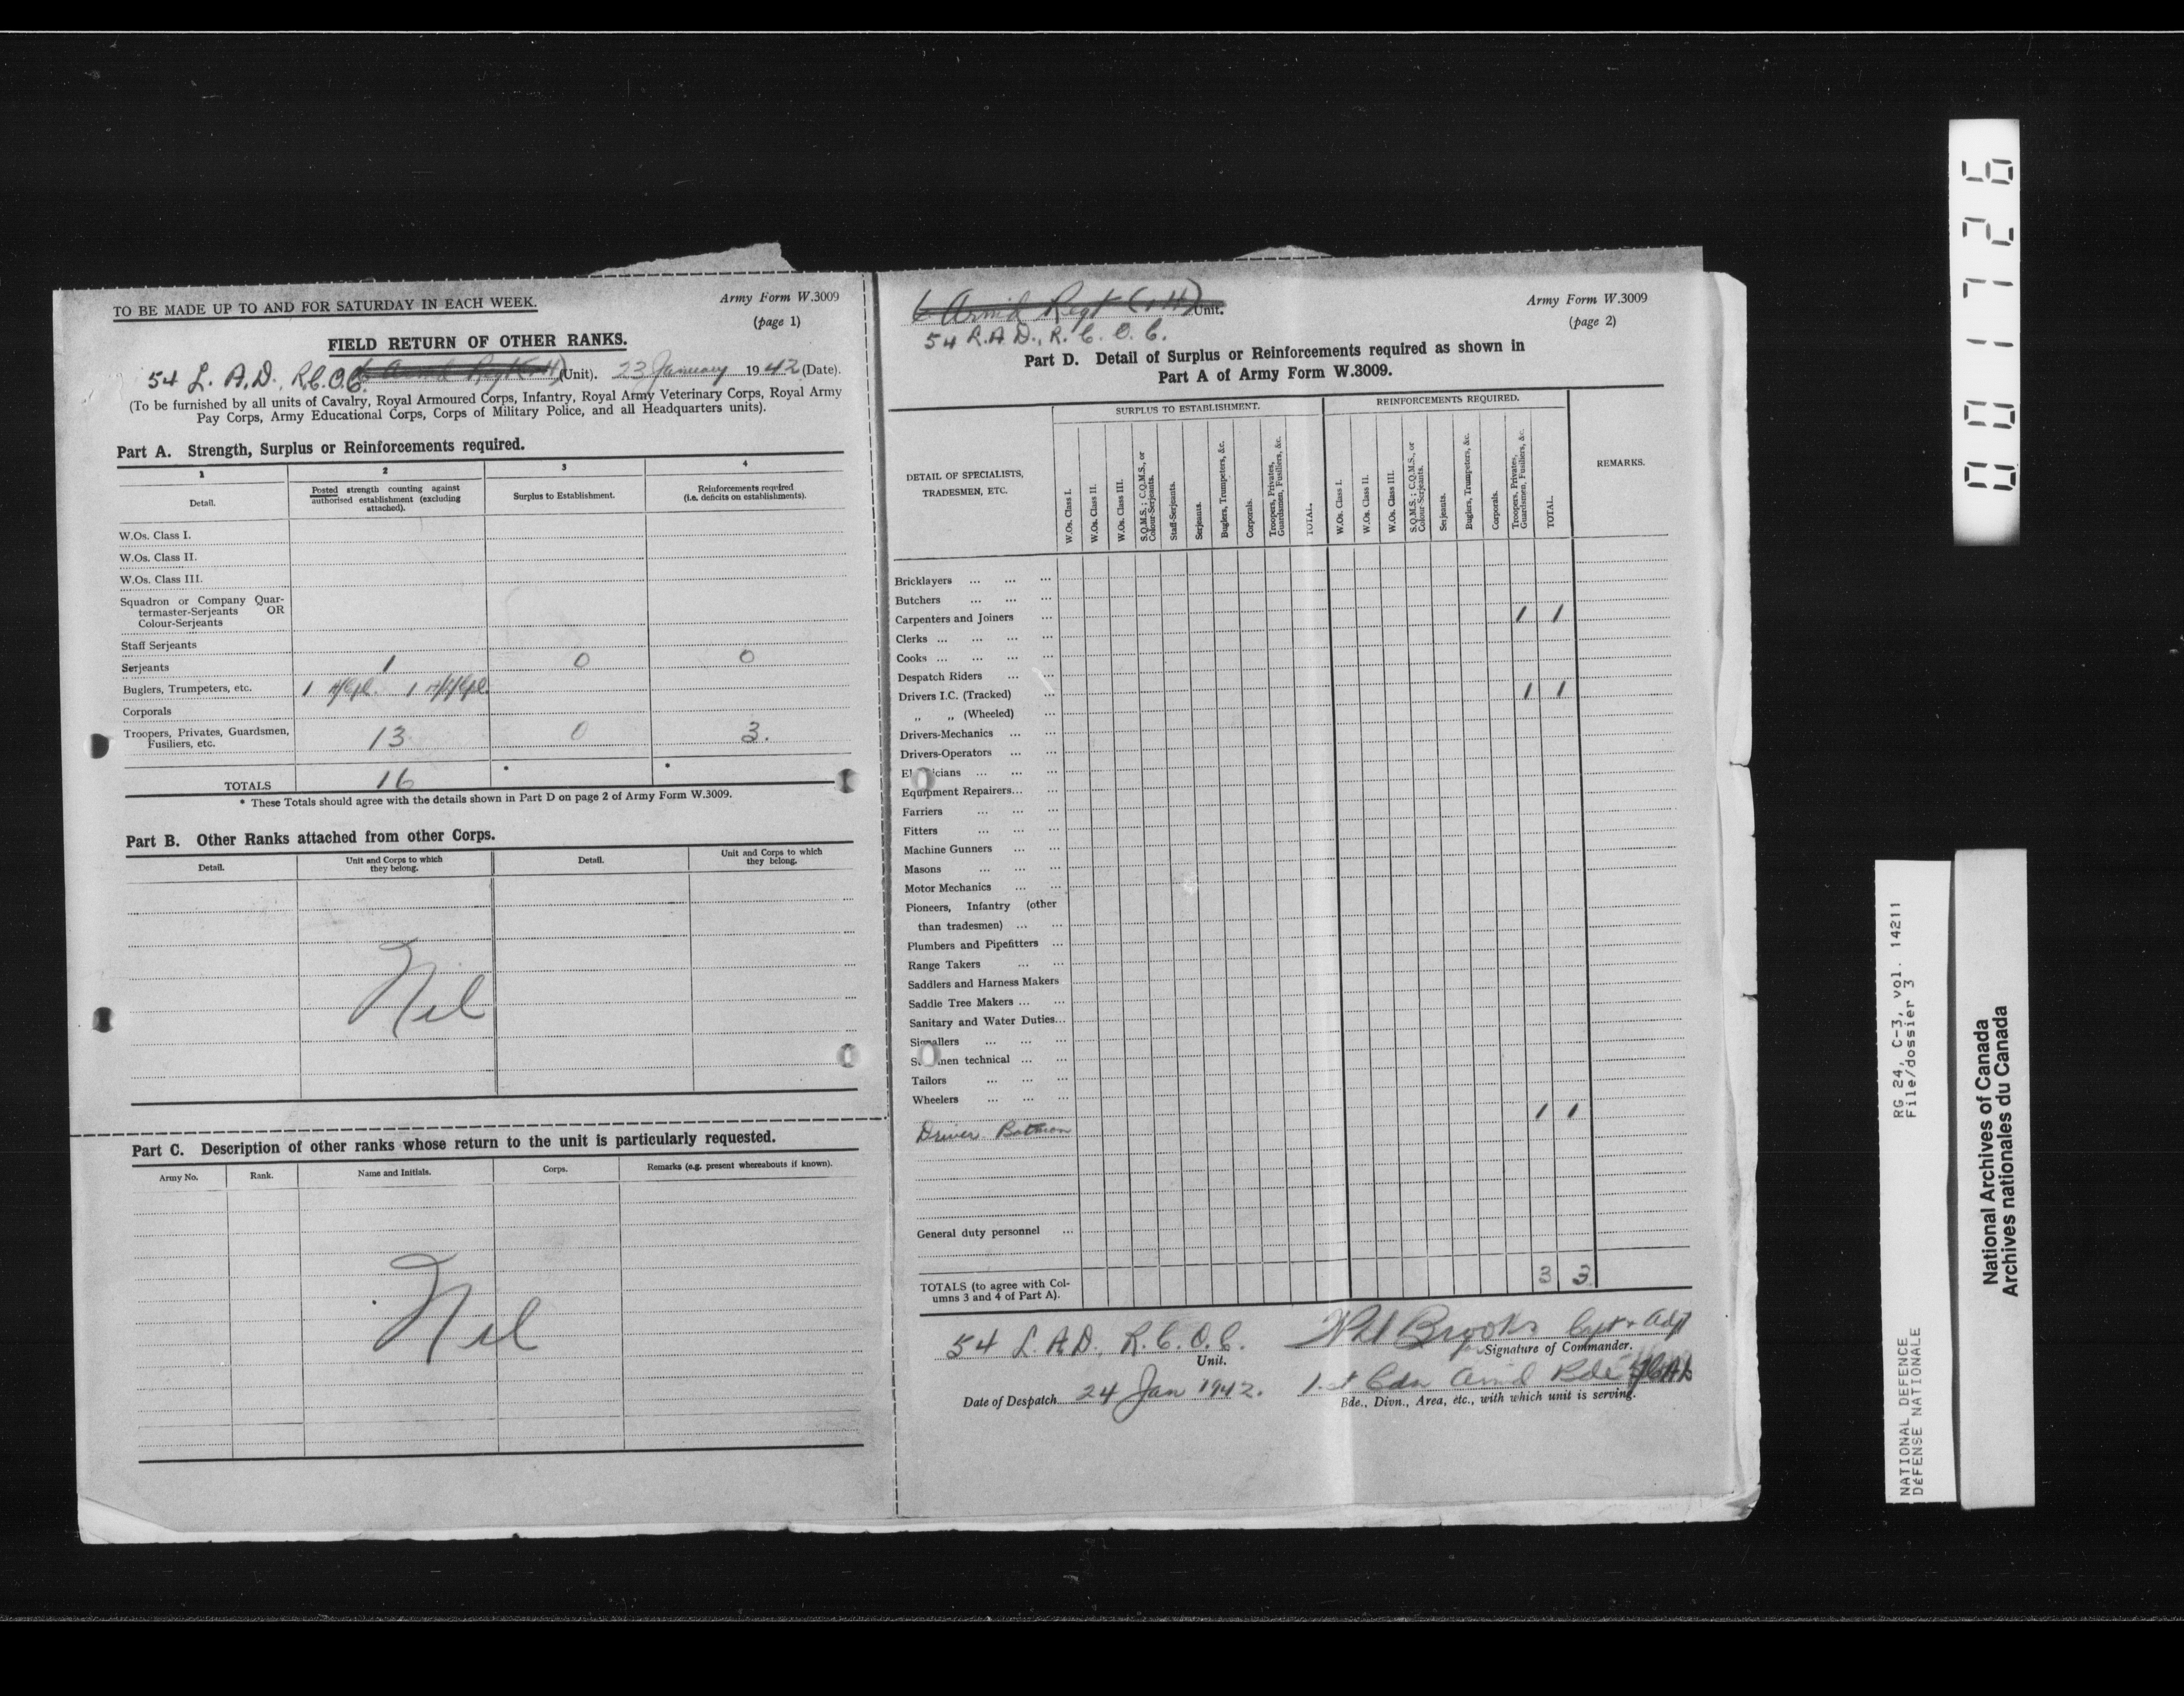 TO BE MADE UP TO AND FOR SATURDAY IN EACH WEEK.
Army Form W.3009
(page 1)
FIELD RETURN OF OTHER RANKS.
54 L. A.D., R.C.O.C. (Unit). 23 January 1942 (Date).
(To be furnished by all units of Cavalry, Royal Armoured Corps, Infantry, Royal Army Veterinary Corps, Royal Army
Pay Corps, Army Educational Corps, Corps of Military Police, and all Headquarters units).
Part A. Strength, Surplus or Reinforcements required.
1 2 3 4
Detail.
Posted strength counting against
authorised establishment (excluding
attached).
Surplus to Establishment.
Reinforcements required
(i.e. deficits on establishments).
W.Os. Class I.
W.Os. Class II.
W.Os. Class III.
Squadron or Company Quar-
termaster-Serjeants OR
Colour-Serjeants
Staff Serjeants
Serjeants 1 0 0
Buglers, Trumpeters, etc. 1 A/Cpl. 1
Corporals
Troopers, Privates, Guardsmen,
Fusiliers, etc. 13 0 3.
TOTALS 16 * *
* These Totals should agree with the details shown in Part D on page 2 of Army Form W.3009.
Part B. Other Ranks attached from other Corps.
Detail.
Unit and Corps to which
they belong.
Detail.
Unit and Corps to which
they belong.
Nil
Part C. Description of other ranks whose return to the unit is particularly requested.
Army No. Rank. Name and Initials. Corps. Remarks (e.g. present whereabouts if known).
Nil
6 Armd Regt (1 H) Unit.
54 L.A.D., R.C.O.C.
Army Form W.3009
(page 2)
Part D. Detail of Surplus or Reinforcements required as shown in
Part A of Army Form W.3009.
DETAIL OF SPECIALISTS,
TRADESMEN, ETC.
SURPLUS TO ESTABLISHMENT.
W.Os. Class I.
W.Os. Class II.
W.Os. Class III.
S.Q.M.S.; C.Q.M.S., or
Colour-Serjeants.
Staff-Serjeants.
Serjeants.
Buglers, Trumpeters, &c.
Corporals.
Troopers, Privates,
Guardsmen, Fusiliers, &c.
TOTAL.
REINFORCEMENTS REQUIRED.
W.Os. Class I.
W.Os. Class II.
W.Os. Class III.
S.Q.M.S.; C.Q.M.S., or
Colour-Serjeants.
Serjeants.
Buglers, Trumpeters, &c.
Corporals.
Troopers, Privates,
Guardsmen, Fusiliers, &c.
TOTAL.
REMARKS.
Bricklayers ... ... ...
Butchers ... ... ...
Carpenters and Joiners ... 1 1
Clerks ... ... ... ...
Cooks ... ... ... ...
Despatch Riders ... ...
Drivers I.C. (Tracked) ... 1 1
„ „ (Wheeled) ...
Drivers-Mechanics ... ...
Drivers-Operators ... ...
El icians ... ... ...
Equipment Repairers... ...
Farriers ... ... ...
Fitters ... ... ...
Machine Gunners ... ...
Masons ... ... ...
Motor Mechanics ... ...
Pioneers, Infantry (other
than tradesmen) ... ...
Plumbers and Pipefitters ...
Range Takers ... ...
Saddlers and Harness Makers
Saddle Tree Makers ... ...
Sanitary and Water Duties...
Signallers ... ... ...
S men technical ... ...
Tailors ... ... ...
Wheelers ... ... ...
Driver Batman 1 1
General duty personnel ...
TOTALS (to agree with Col-
umns 3 and 4 of Part A). 3 3
54 L.A.D., R.C.O.C.
Unit.
Brooks Capt & Adjt
Signature of Commander.
Date of Despatch 24 Jan 1942.
1st Cdn Armd Bde
Bde., Divn., Area, etc., with which unit is serving.
0001726
RG 24, C-3, vol. 14211
File/dossier 3
NATIONAL DEFENCE
DÉFENSE NATIONALE
National Archives of Canada
Archives nationales du Canada